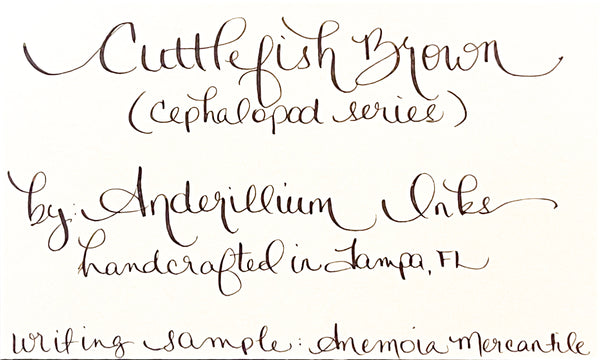 Cuttlefish Brown
(cephalopod series)
by: Anderillium Inks
handcrafted in Tampa, FL
writing sample: Anemoia Mercantile